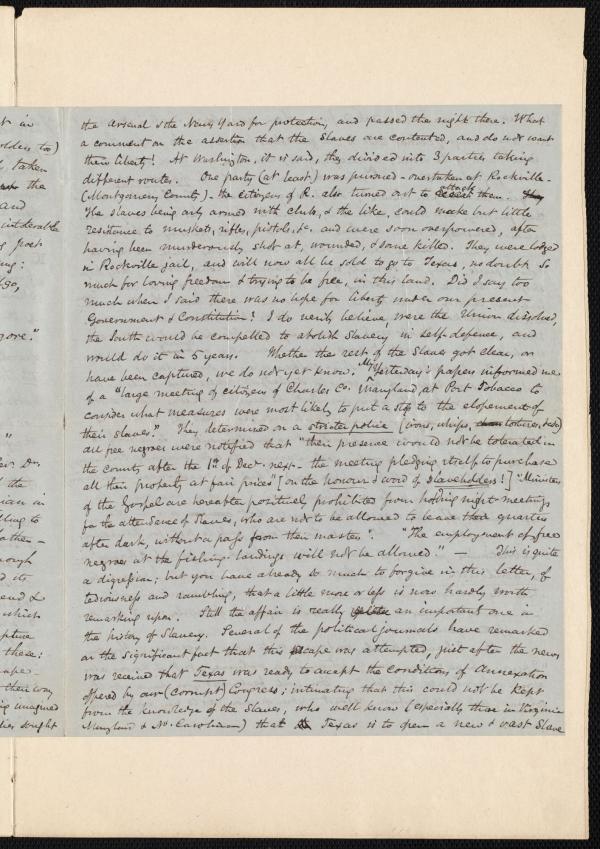 t in
olders too)
taken
the
and
siderable
post
ing:
ago,
gore."
"
Dr.
the
ian in
lling to
ather -
nough
d its
end &
which
pture
these:
cape
their way
ing imagined
ties sought
the Arsenal & the Navy Yard for protection, and passed the night there. What
a comment on the assertion that the slaves are contented, and do not want
their liberty! At Washington, it is said, they divided into 3 parties taking
different routes. One party (at least) was pursued - overtaken at Rockville -
(Montgomery County) - the citizens of R. also turned out to attack them.
The slaves being only armed with clubs, & the like, could make but little
resistance to muskets, rifles, pistols, &c. and were soon overpowered, after
having been murderously shot at, wounded, & some killed. They were lodged
in Rockville jail, and will now all be sold to go to Texas, no doubt. So
much for loving freedom & trying to be free, in this land. Did I say too
much when I said there was no hope for liberty under our present
Government & Constitution! I do verily believe, were the Union dissolved,
the South would be compelled to abolish Slavery in self-defence, and
would do it in 5 years. Whether the rest of the Slaves got clear, or
have been captured, we do not yet know. My yesterday's papers informed me
of a "large meeting of citizens of Charles Co. Maryland, at Port Tobacco to
consider what measures were most likely to put a stop to the elopement of
their slaves." They determined on a stricter police [irons, whips, tortures, &c &c]
all free negroes were notified that "their presence would not be tolerated in
the County after the 1st of Decr. next - the meeting pledging itself to purchase
all their property at fair prices" [on the honour & word of slaveholders!] "Ministers
of the Gospel are hereafter positively prohibited from holding night-meetings
for the attendance of slaves, who are not to be allowed to leave their quarters
after dark, without a pass from their master". "The employment of free
negroes at the fishing landings will not be allowed." — This is quite
a digression; but you have already so much to forgive in this letter, of
tediousness and rambling, that a little more or less is now hardly worth
remarking upon. Still the affair is really an important one in
the history of Slavery. Several of the political journals have remarked
on the significant fact that this escape was attempted, just after the news
was received that Texas was ready to accept the conditions of Annexation
offered by our (corrupt) Congress; intimating that this could not be kept
from the knowledge of the Slaves, who well know (especially those in Virginia
Maryland & No. Carolina) that Texas is to open a new & vast Slave